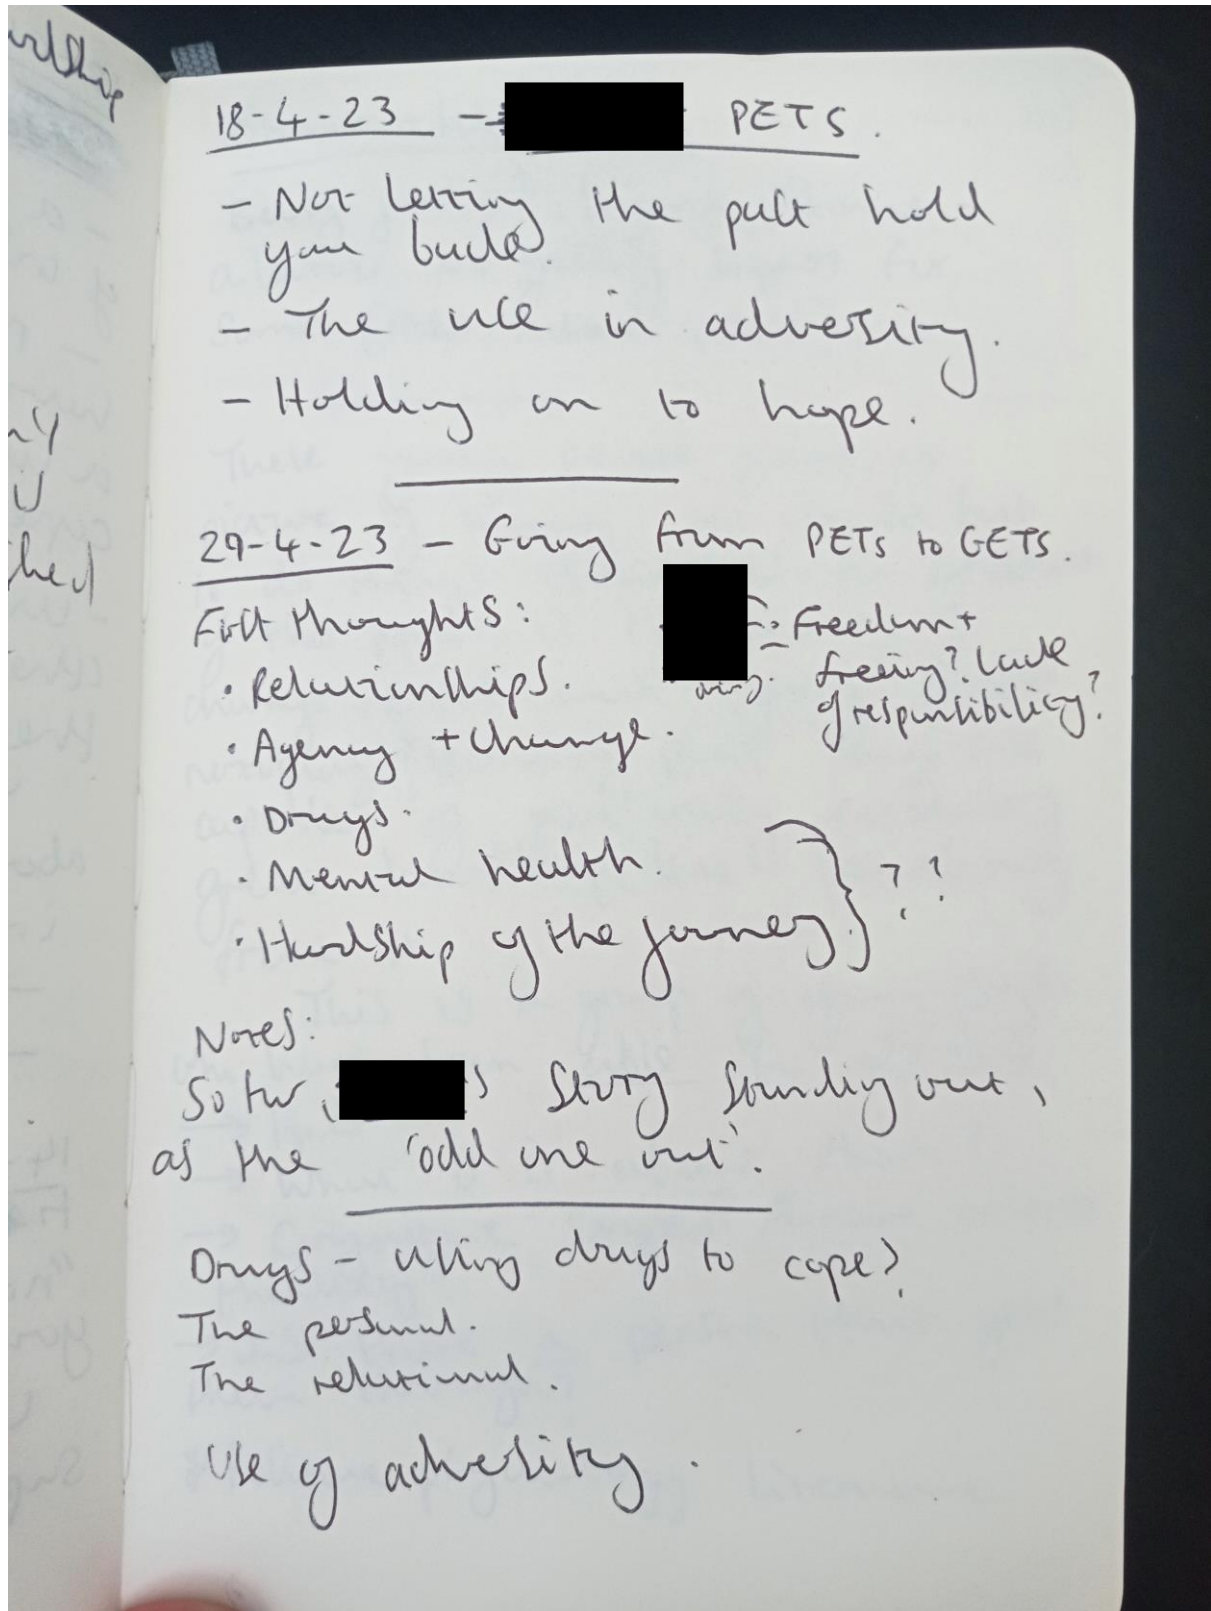 18-4-23 - PETS.
- Not letting the past hold
you back.
- The use in adversity.
- Holding on to hope.
29-4-23 - Going from PETs to GETS.
First thoughts:
· Relationships.
· Agency + change.
· Drugs.
· Mental health.
· Hardship of the journey. } ??
Freedom +
freeing? Lack
of responsibility?
Notes:
So far, s story standing out,
as the 'odd one out'.
Drugs - using drugs to cope?
The personal.
The relational.
Use of adversity.